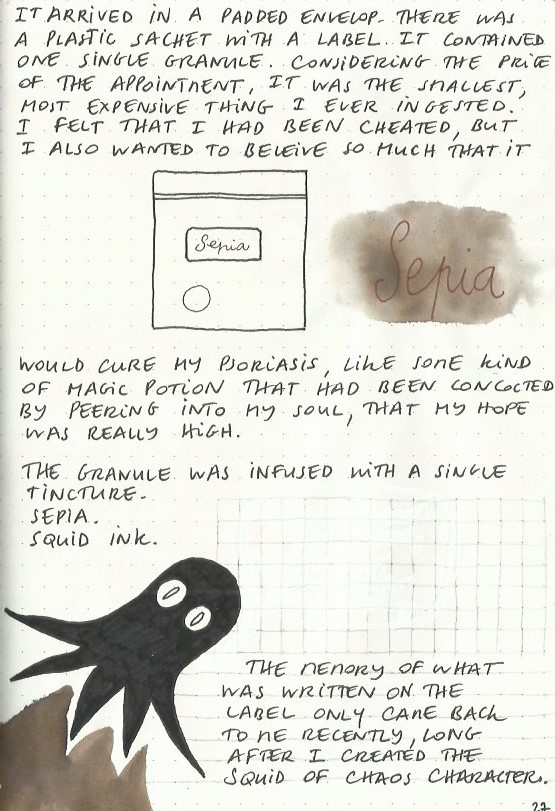 IT ARRIVED IN A PADDED ENVELOP. THERE WAS
A PLASTIC SACHET WITH A LABEL. IT CONTAINED
ONE SINGLE GRANULE. CONSIDERING THE PRICE
OF THE APPOINTMENT, IT WAS THE SMALLEST,
MOST EXPENSIVE THING I EVER INGESTED.
I FELT THAT I HAD BEEN CHEATED, BUT
I ALSO WANTED TO BELEIVE SO MUCH THAT IT
Sepia
Sepia
WOULD CURE MY PSORIASIS, LIKE SOME KIND
OF MAGIC POTION THAT HAD BEEN CONCOCTED
BY PEERING INTO MY SOUL, THAT MY HOPE
WAS REALLY HIGH.
THE GRANULE WAS INFUSED WITH A SINGLE
TINCTURE.
SEPIA.
SQUID INK.
THE MEMORY OF WHAT
WAS WRITTEN ON THE
LABEL ONLY CAME BACK
TO ME RECENTLY, LONG
AFTER I CREATED THE
SQUID OF CHAOS CHARACTER.